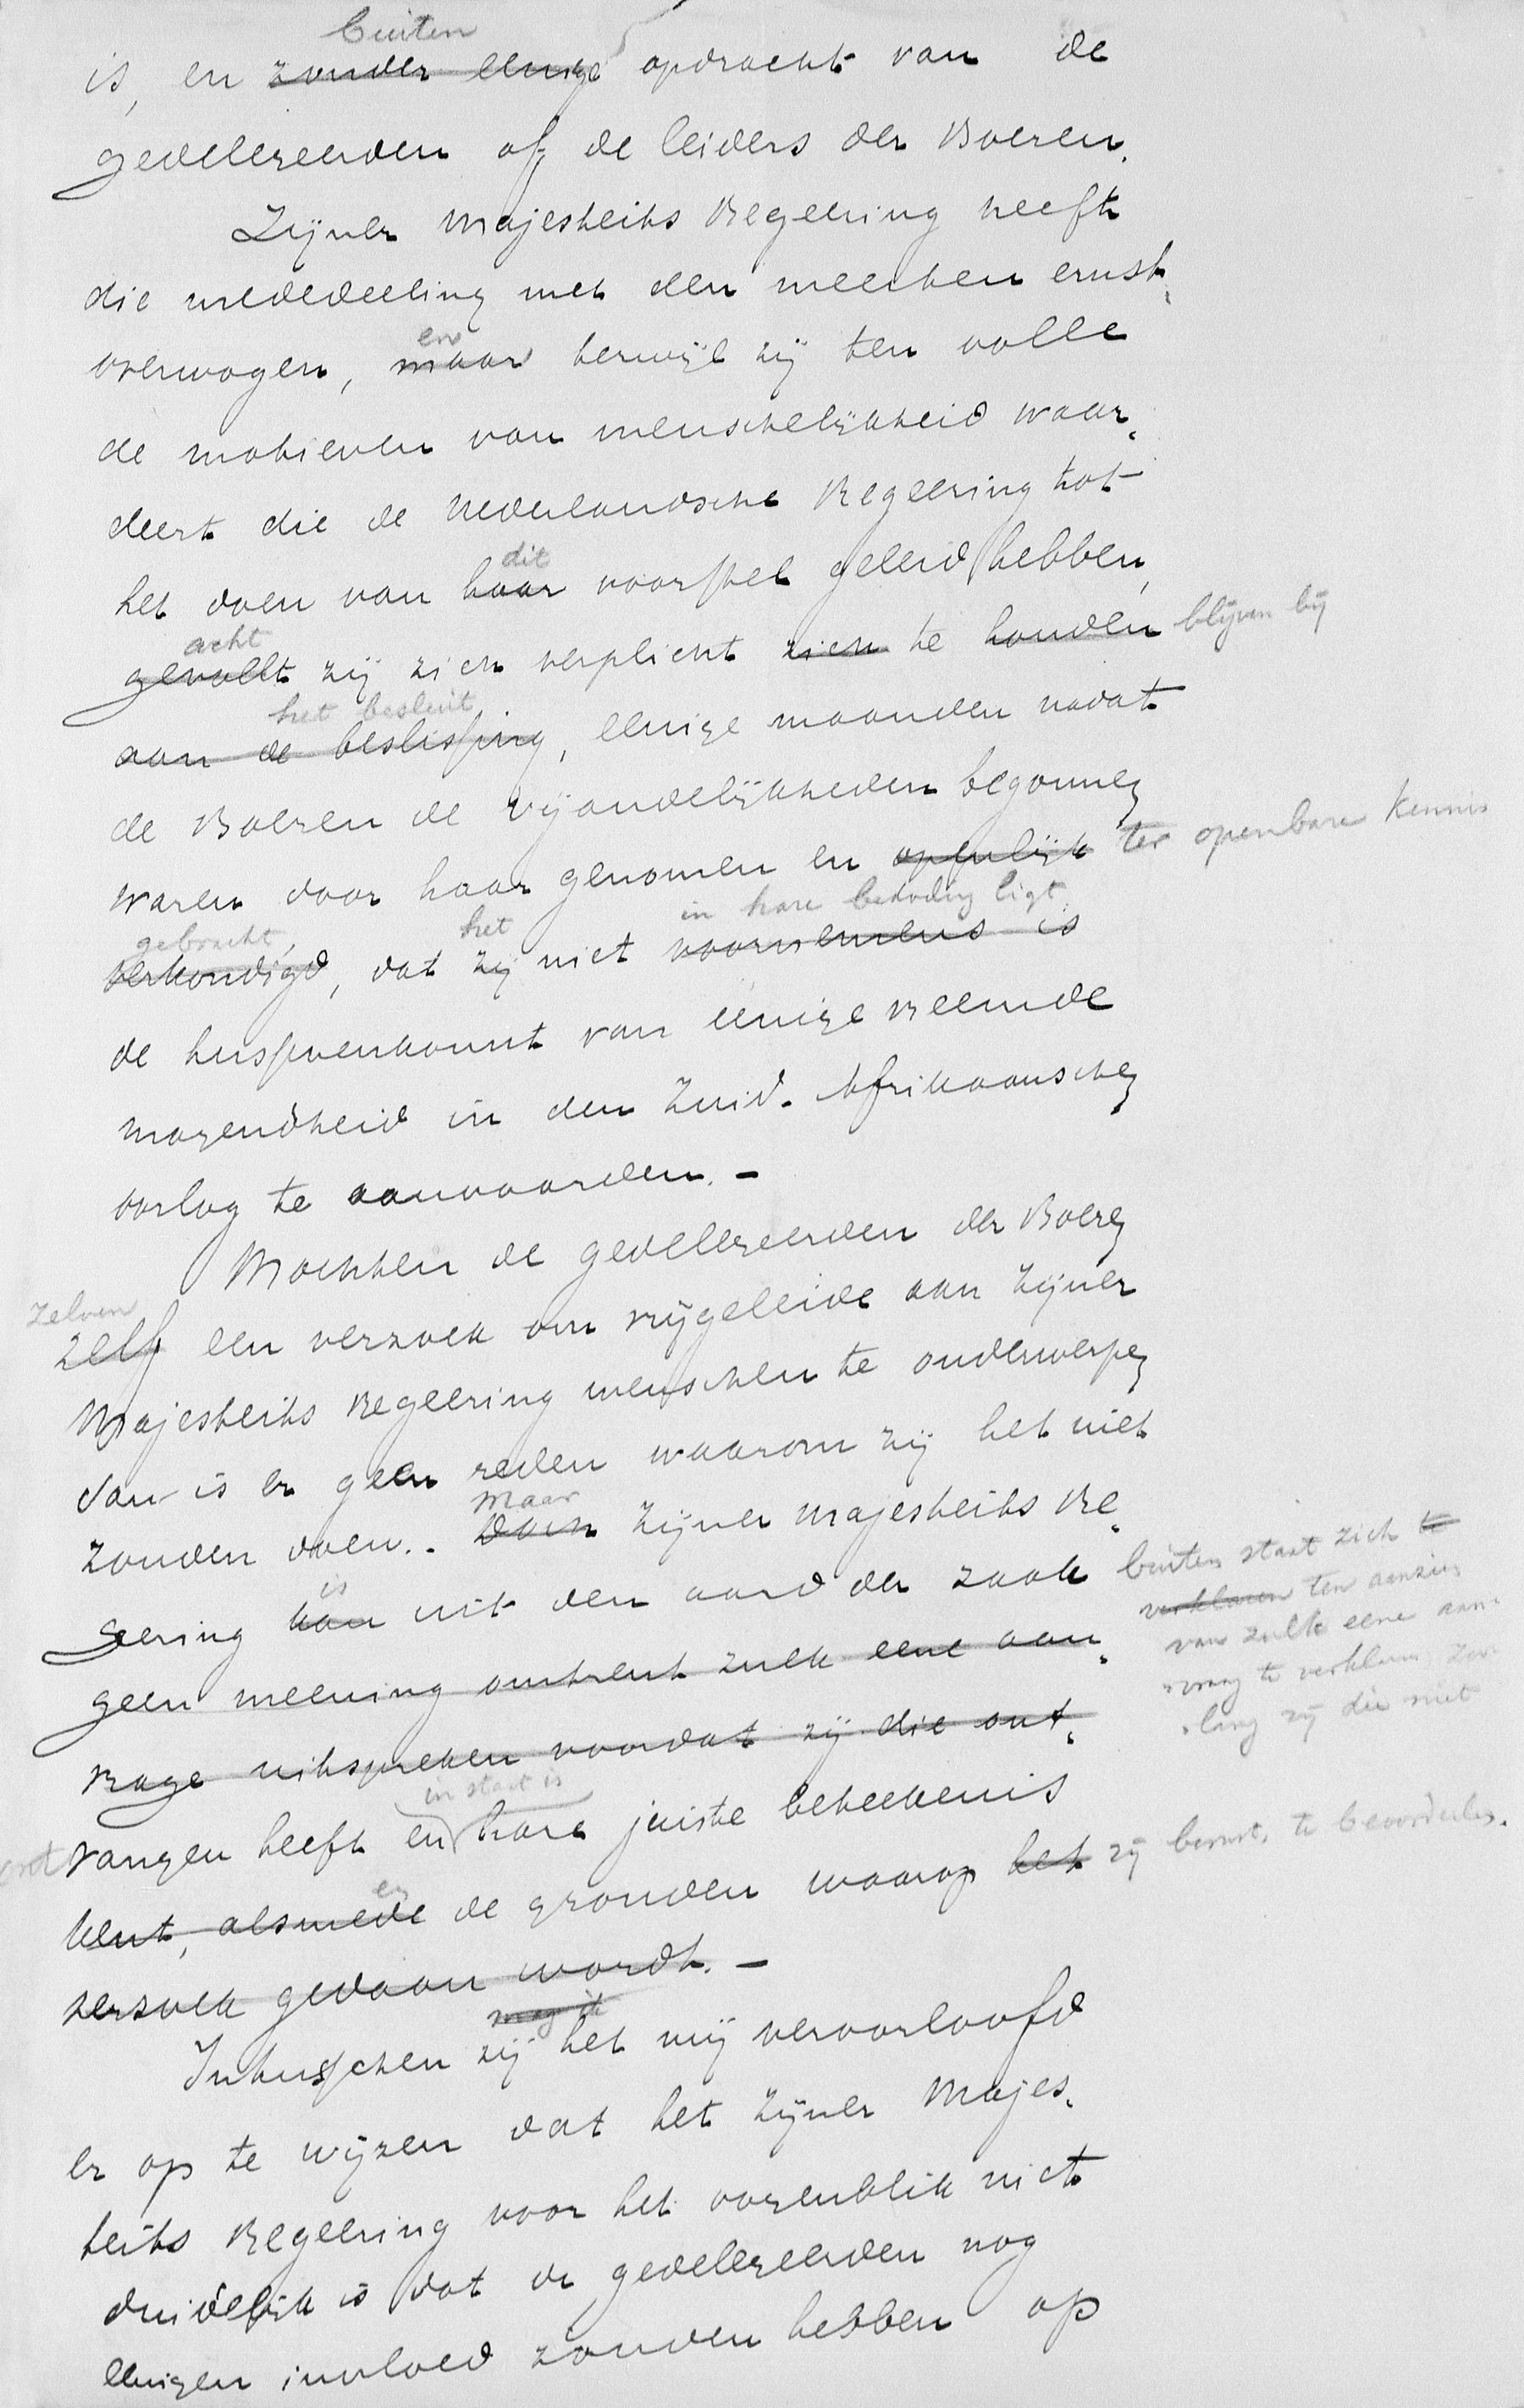 buiten
is, en zonder eenige opdracht van de
gedelegeerden of de leiders der Boeren.
Zijner Majesteits Regeering heeft
die mededeeling met den meesten ernst
en
overwogen, maar terwijl zij ten volle
de motieven van menschelijkheid waar-
deert die de Nederlandsche Regeering tot
dit
het doen van haar voorstel geleid hebben,
acht
gevoelt zij zich verplicht zich te houden blijven bij
het besluit
aan de beslissing, eenige maanden nadat
de Boeren de vijandelijkheden begonnen
waren door haar genomen en openlijk ter openbare kennis
gebracht, het in hare bedoeling ligt
verkondigd, dat zij niet voornemens is
de tusschenkomst van eenige vreemde
mogendheid in den Zuid-Afrikaanschen
oorlog te aanvaarden. -
Mochten de gedelegeerden der Boeren
zelven
zelf een verzoek om vrijgeleide aan Zijner
Majesteits Regeering wenschen te onderwerpen
dan is er geen reden waarom zij het niet
maar
zouden doen. Doch Zijner Majesteits Re-
is
geering kan uit den aard der zaak buiten staat zich te
verklaren ten aanzien
geen meening omtrent zulk eene aan-
van zulk eene aan-
vraag te verklaren, zoo-
vrage uitspreken voordat zij die ont-
lang zij die niet
in staat is
ontvangen heeft en hare juiste beteekenis
en
kent, alsmede de gronden waarop het zij berust, te beoordeelen.
verzoek gedaan wordt. -
mag ik
Intusschen zij het mij veroorloofd
er op te wijzen dat het Zijner Majes-
teits Regeering voor het oogenblik niet
duidelijk is dat de gedelegeerden nog
eenigen invloed zouden hebben op